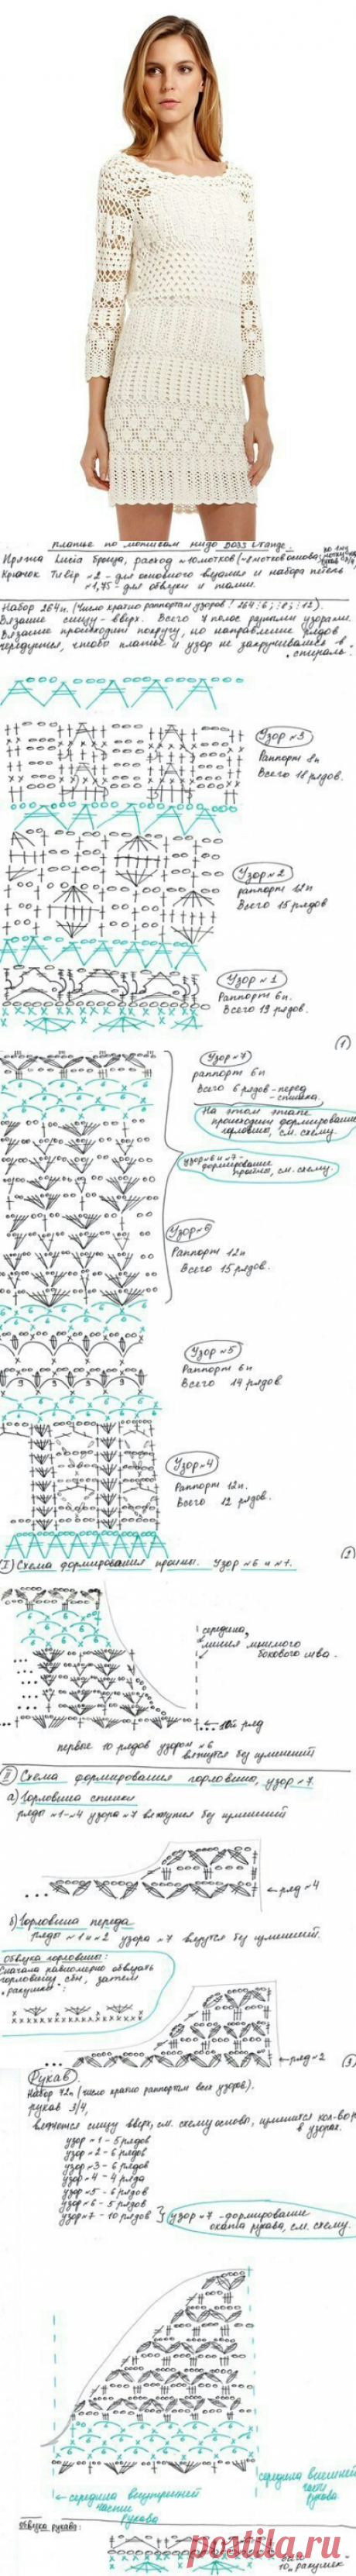 Платье по мотивам модо Boss Orange.
Пряжа Lucia Бреица, расход ≈10 мотков (≈8 мотков основа
Крючок Тибір №2 - для основного вязания и набора петель
№1,75 - для обвязки и талии.
Набор 264п. (Число кратно раппортам узоров! 264⋮6;⋮8;⋮12).
Вязание снизу-вверх. Всего 7 полос разными узорами.
Вязание происходит по кругу, но направление рядов
чередуется, чтобы платье и узор не закручивались в
спираль.
Узор №3
Раппорт 8п
Всего 18 рядов.
Узор №2
раппорт 12п
Всего 15 рядов
Узор №1
Раппорт 6п.
Всего 19 рядов.
1
Узор №7
раппорт 6п
Всего 6 рядов - перед
- спинка.
На этом этапе
происходит формирование
горловины, см. схему.
узор №6 и №7 -
формирование
проймы, см. схему.
Узор №6
Раппорт 12п
Всего 15 рядов.
Узор №5
Раппорт 6п
Всего 14 рядов
Узор №4
Раппорт 12п.
Всего 12 рядов.
2
I Схема формирования проймы. Узор №6 и №7.
середина,
линия мнимого
бокового шва.
← 10й ряд
первые 10 рядов узором №6
вяжутся без изменений
II Схема формирования горловины, узор №7.
а) Горловина спинки
ряды №1-№4 узора №7 вяжутся без изменений
← ряд №4
б) Горловина переда
ряды №1 и №2 узора №7 вяжутся без изменений.
Обвязка горловины:
Сначала равномерно обвязать
горловину сбн, затем
"ракушки":
← ряд №2
3
Рукав
Набор 72п (число кратно раппортам всех узоров).
рукав 3/4,
вяжется снизу вверх, см. схему основы, изменится кол-во р
в узорах.
узор №1 - 5 рядов
узор №2 - 6 рядов
узор №3 - 6 рядов
узор №4 - 4 ряда
узор №5 - 6 рядов
узор №6 - 5 рядов
узор №7 - 10 рядов
узор №7 - формирование
оката рукава, см. схему.
← середина внутренней
части
рукава
середина внешней
части
рукава
Обвязка рукава:
10 "ракушек"
postila.ru